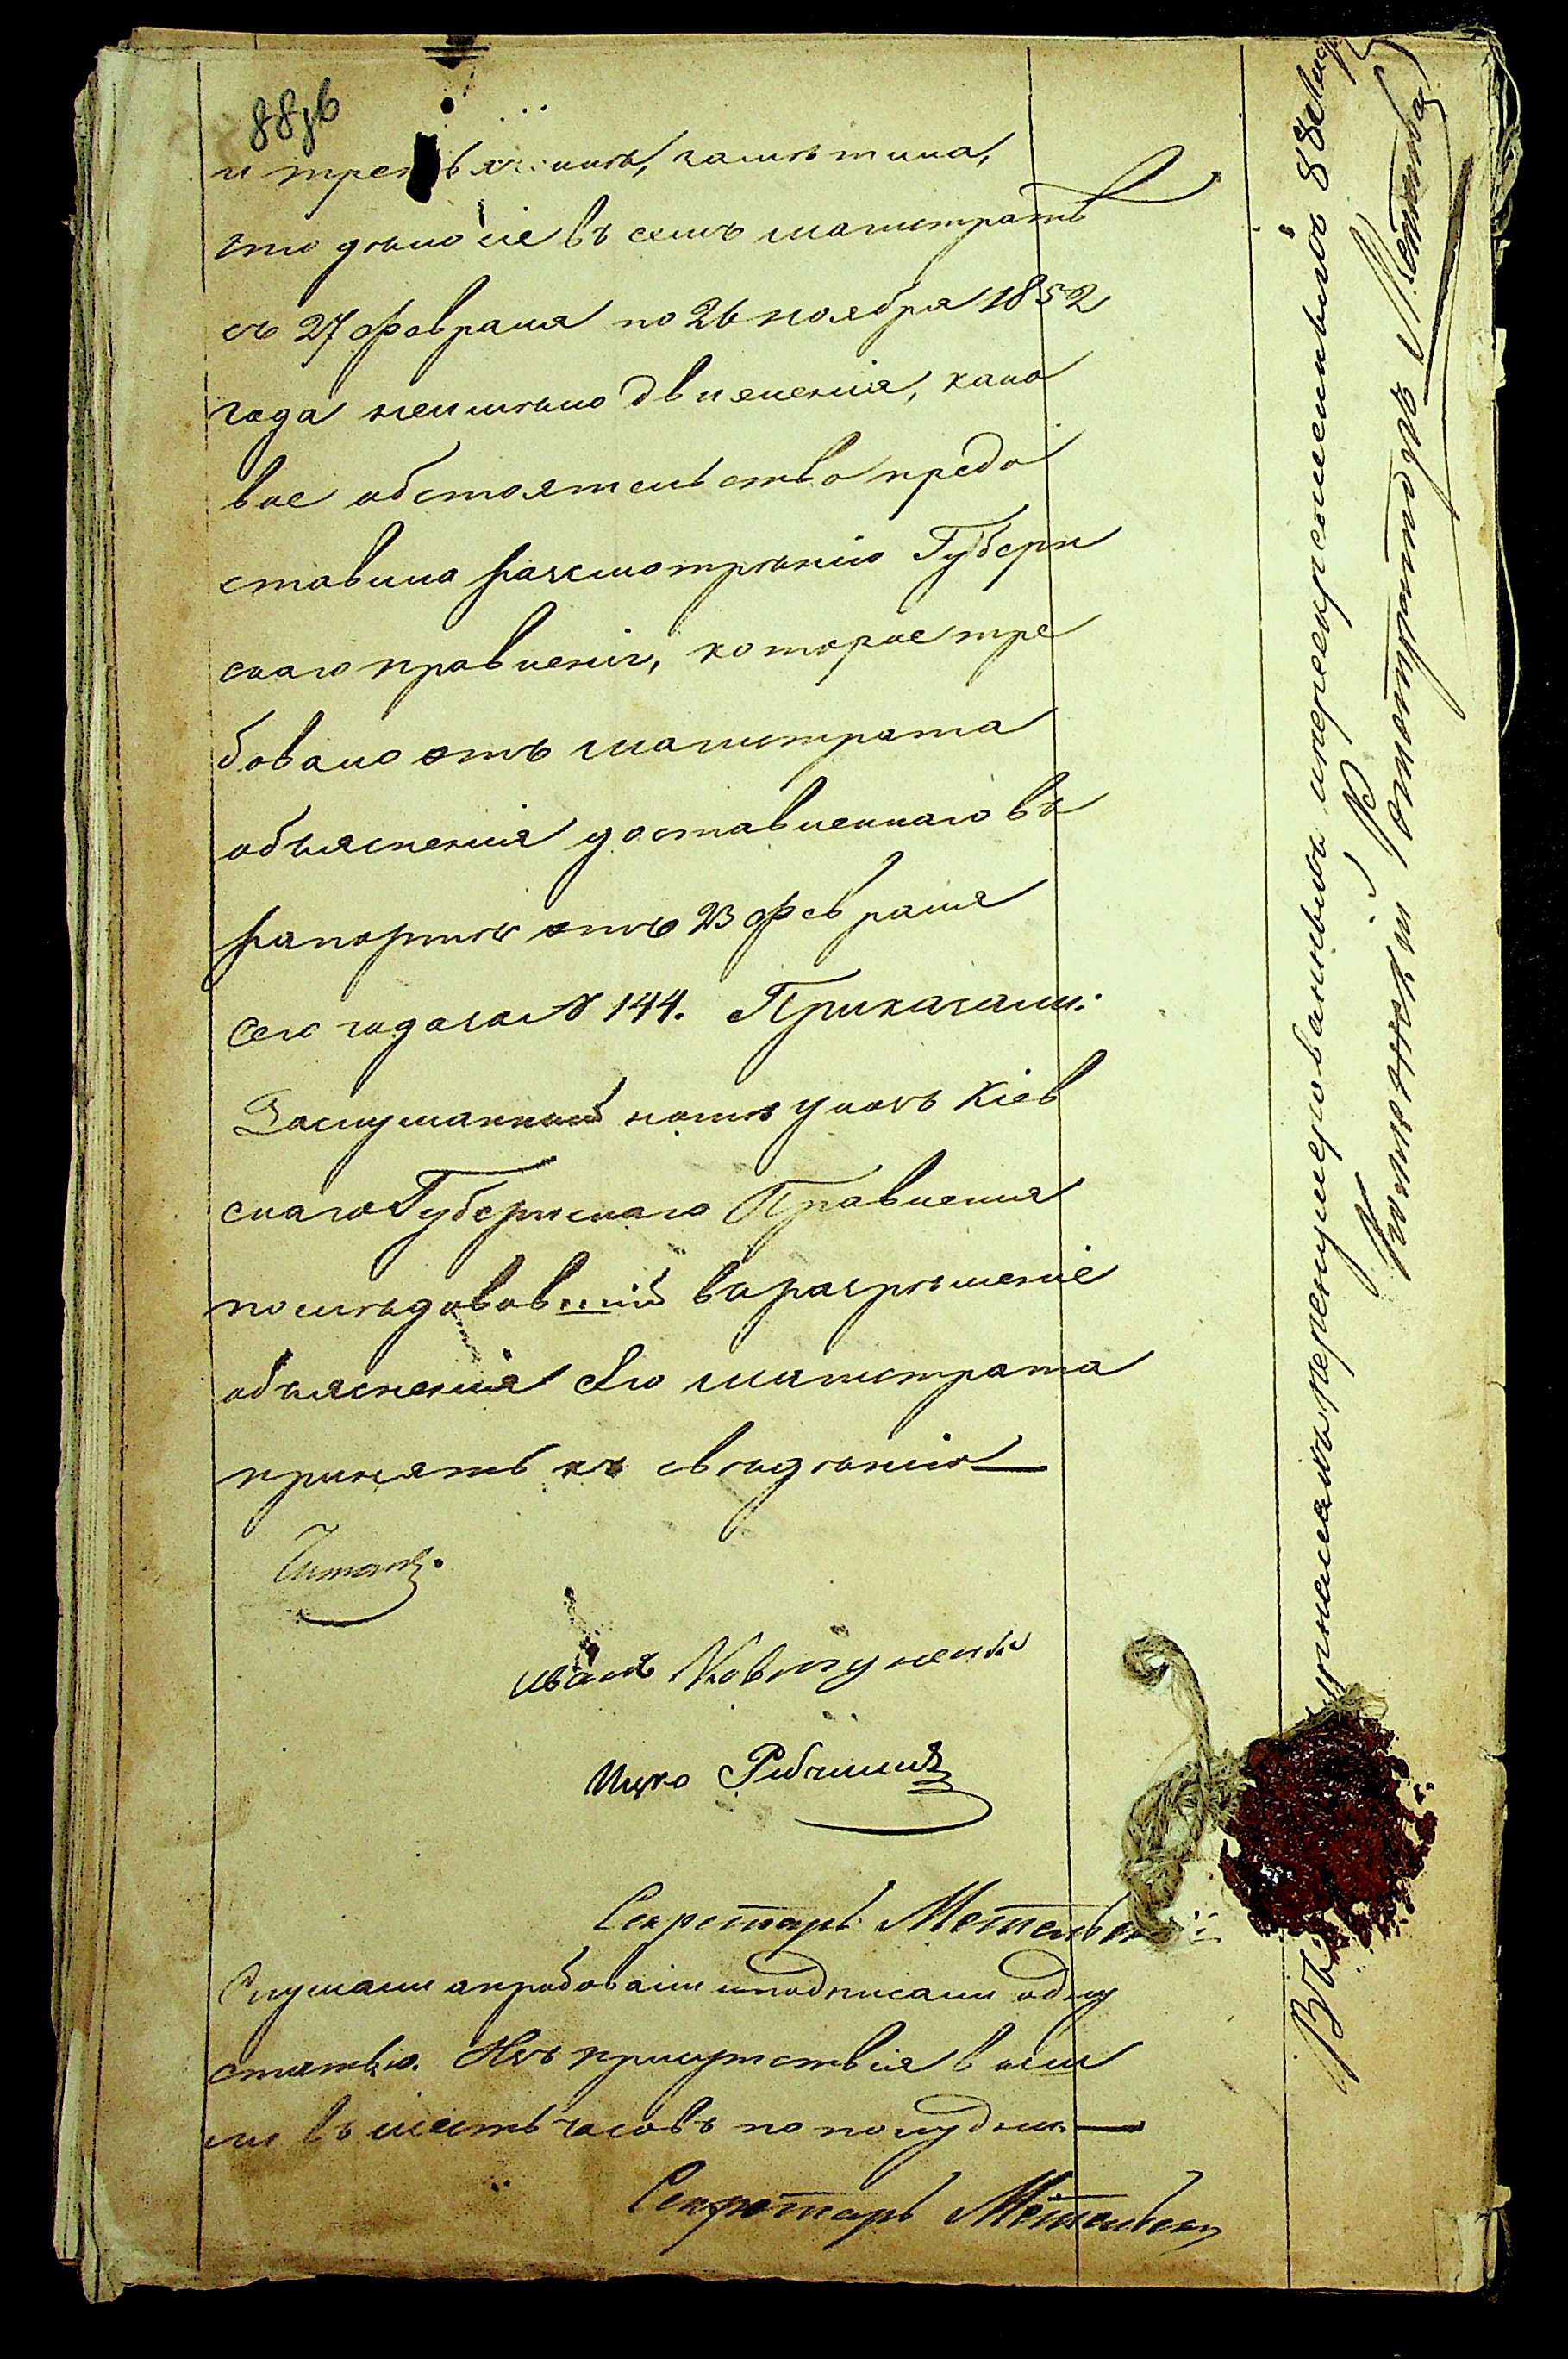 88зв
заметила,
что дело сіе въ семъ магистратѣ
съ 27 февраля по 26 ноября 1852
года неимѣло движенія, како
вое обстоятельство предо
ставила разсмотрѣнію Губерн
скаго правленія, которое тре
бовало отъ магистрата
объясненія доставленнаго въ
рапортѣ отъ 23 февраля
сего года за № 144. Приказали:
Заслушанный указъ Кіев
скаго Губернскаго Правленія
последовавшій въ разрѣшеніе
объясненія сего магистрата
принять къ сведѣнію
Читалъ
Иванъ Ковтуненко
Ицко
Секретарь Метельск
Слушали апробовали и подписали одну
статью. Изъ присутствія вышли
въ шесть часовъ по полудни
Секретарь Метельскій
Въ журналѣ перенумерованныхъ и перескрепленныхъ 88 лис